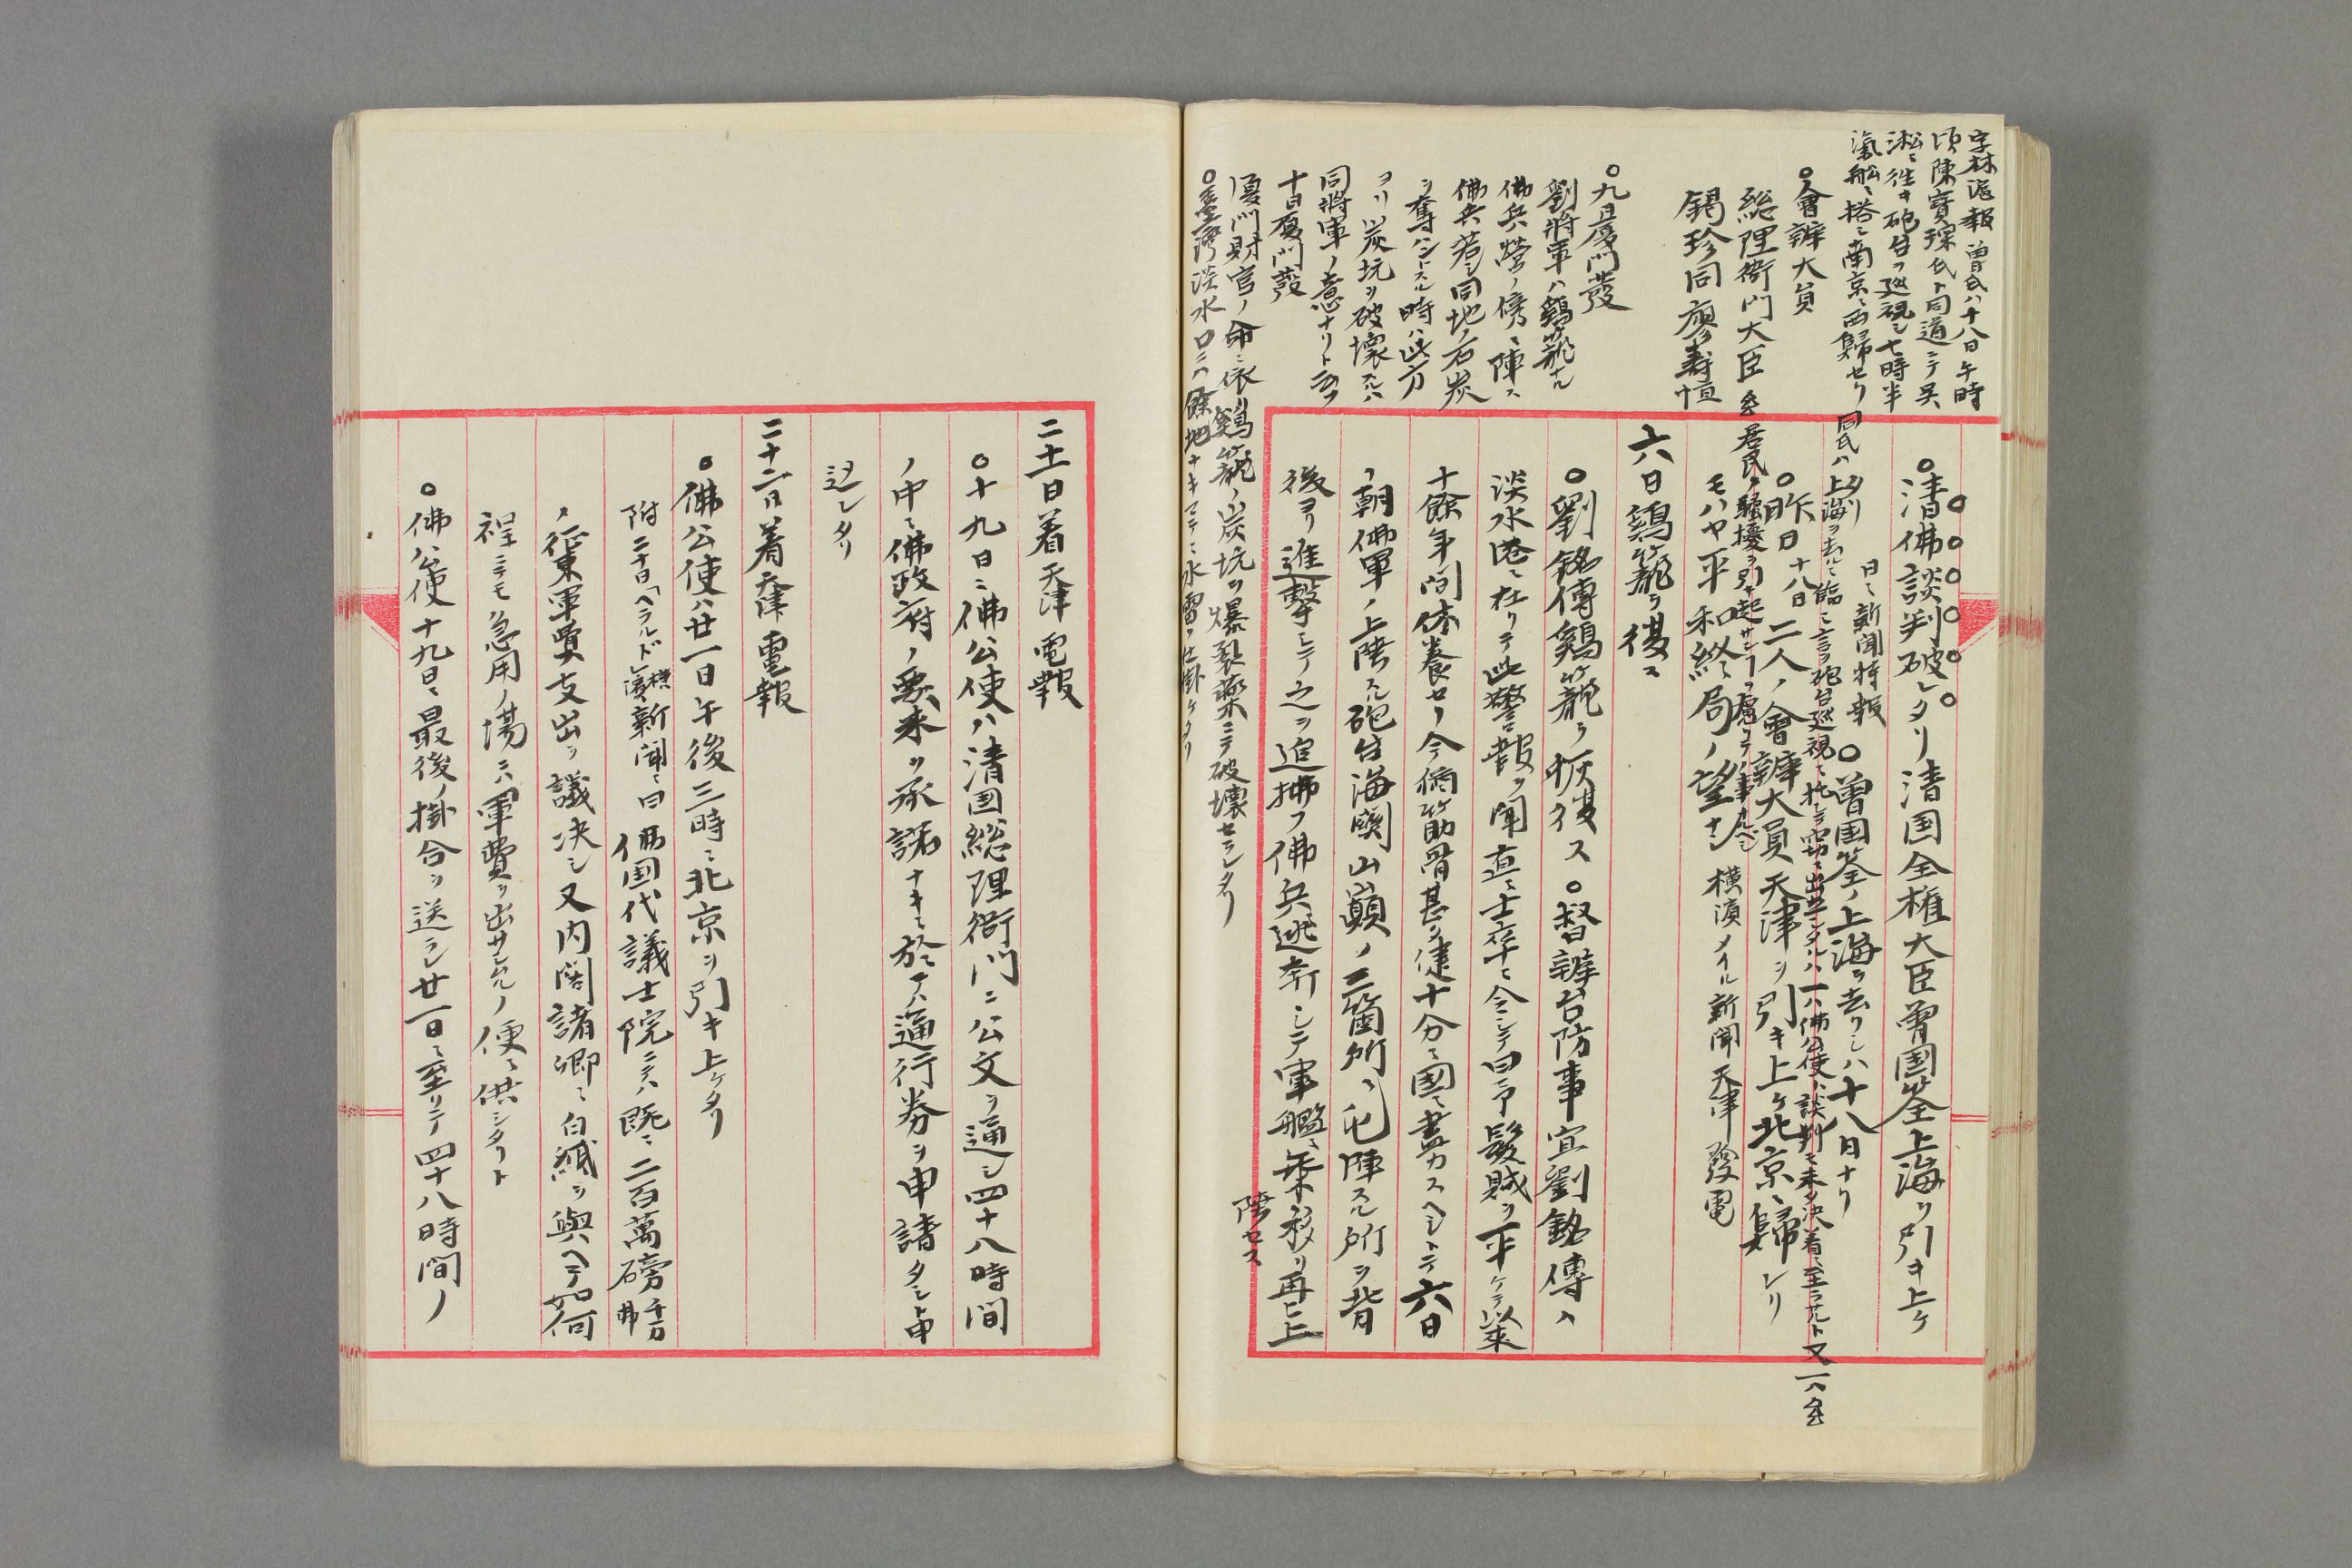 字林滬報曽氏ハ十八日午時
頃陳寶琛氏ト同道ニテ呉
淞ニ徃キ砲台ヲ巡視シ七時半
滊舩ニ搭シ南京ニ西歸セリ 同氏ハ上海ヲ去ルニ臨ミ言フ砲台巡視ニ托シテ窃ニ出立シタルハ一ハ佛公使ト談判モ未タ决着ニ至ラサルト又一ハ
居民ノ騒擾ヲ引キ起サンコヲ慮リテノ事ナルベシ
○會辦大員
総理衙門大臣
錫珍同廖壽恒
○九日厦門發
劉將軍ハ鷄籠ナル
佛兵營ノ傍ニ陣ス
佛兵若シ同地ノ石炭
ヲ奪ハントスル時ハ此方
ヨリ炭坑ヲ破壊スルハ
同將軍ノ意ナリト云フ
十日厦門發
厦門財官ノ命ニ依リ鷄籠ノ炭坑ヲ爆裂藥ニテ破壊セラレタリ
○臺灣淡水口ニハ餘地ナキマテニ水雷ノ仕掛ケタリ
○清佛談判破レタリ清国全権大臣曽国荃上海ヲ引キ上ケ
タリ
日日新聞特報 ○曽国荃ノ上海ヲ去リシハ十八日ナリ
○昨日十八日二人ノ會辦大員天津ヲ引キ上ケ北京ニ歸レリ
モハヤ平和終局ノ望ナシ 横濱メイル新聞天津發電
六日鷄籠ヲ復ス
○劉銘傳鷄籠ヲ恢復ス ○督辦台防事宜劉銘傳ハ
淡水港ニ在リテ此警報ヲ聞直ニ士卒ニ令シテ曰予髪賊ヲ平ケテ以来
十餘年間休養セリ今猶筋骨甚タ健十分ニ國ニ盡力スヘシトテ六日
ノ朝佛軍ノ上陸スル砲台海関山巓ノ三箇所ニ屯陣スル所ヲ背
後ヨリ進撃シテ之ヲ追拂フ佛兵逃奔シテ軍艦ニ乗移リ再ヒ上
陸セス
二十一日着天津電報
○十九日ニ佛公使ハ清国総理衙門ニ公文ヲ通シ四十八時間
ノ中ニ佛政府ノ要求ヲ承諾ナキニ於テハ通行券ヲ申請タシト申
込レタリ
二十二日着天津電報
○佛公使ハ廿一日午後三時ニ北京ヲ引キ上ケタリ
附二十日「ヘラルド」横濱新聞ニ曰佛国代議士院ニテハ既ニ二百萬磅千万弗
ノ征東軍費支出ヲ議决シ又内閣諸卿ニ白紙ヲ與ヘテ如何
程ニテモ急用ノ塲ニハ軍費ヲ出サルルノ便ニ供シタリト
○佛公使十九日ニ最後ノ掛合ヲ送ラレ廿一日ニ至リテ四十八時間ノ